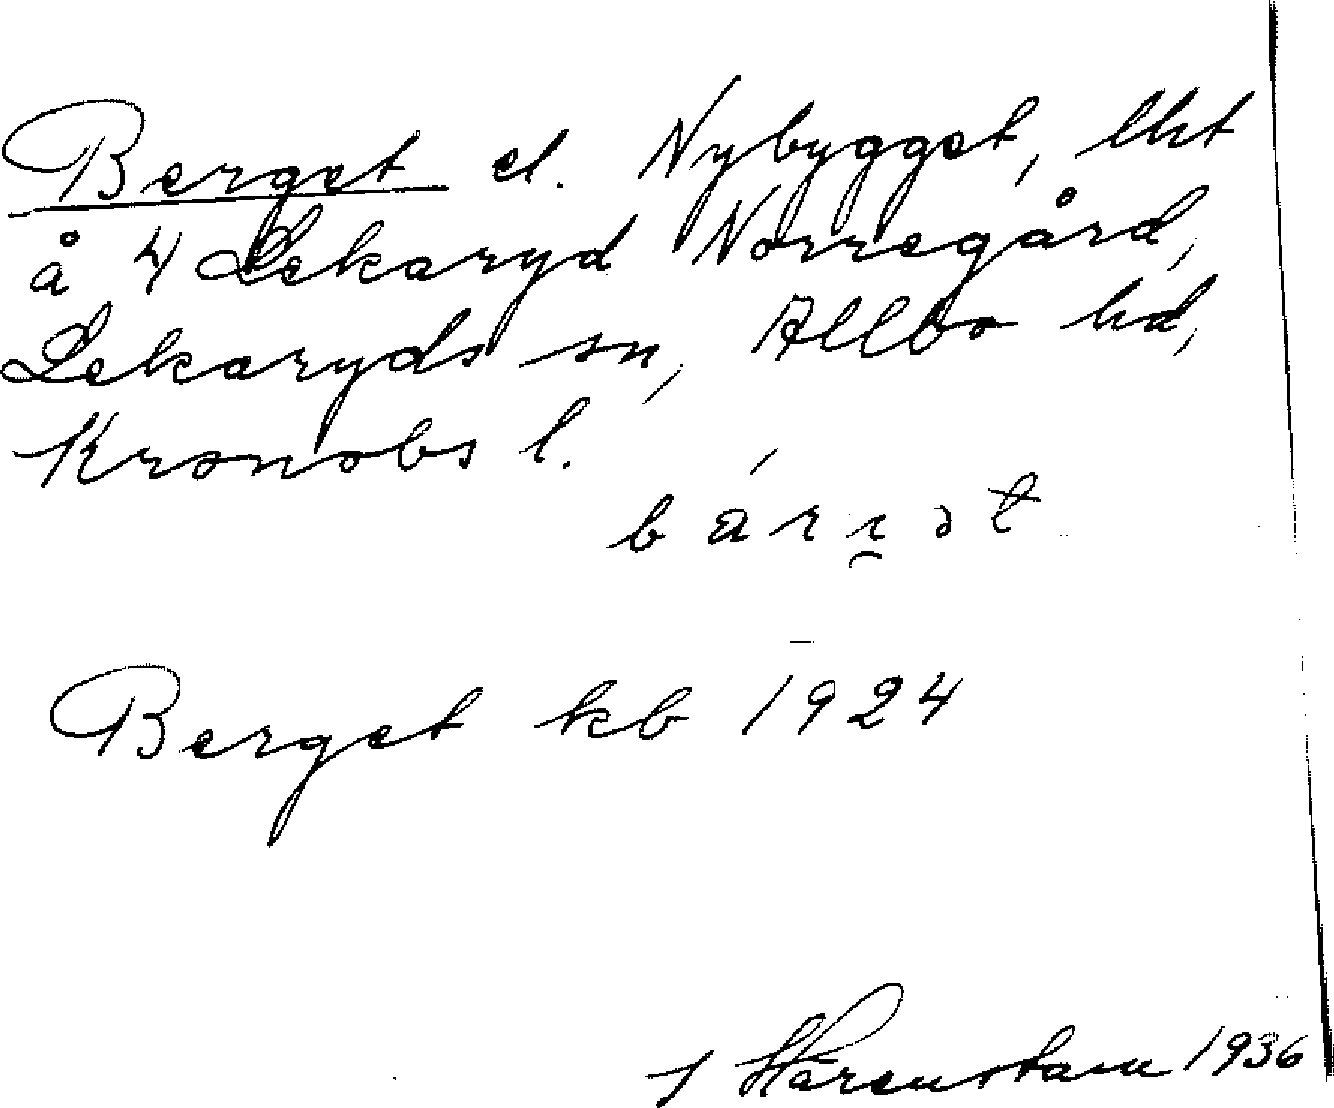 Berget el. Nybygget, lht
å 4 Lekaryd Norregård,
Lekaryds sn, Allbo hd,
Kronobs l.
Berget kb 1924
J Härenstam 1936